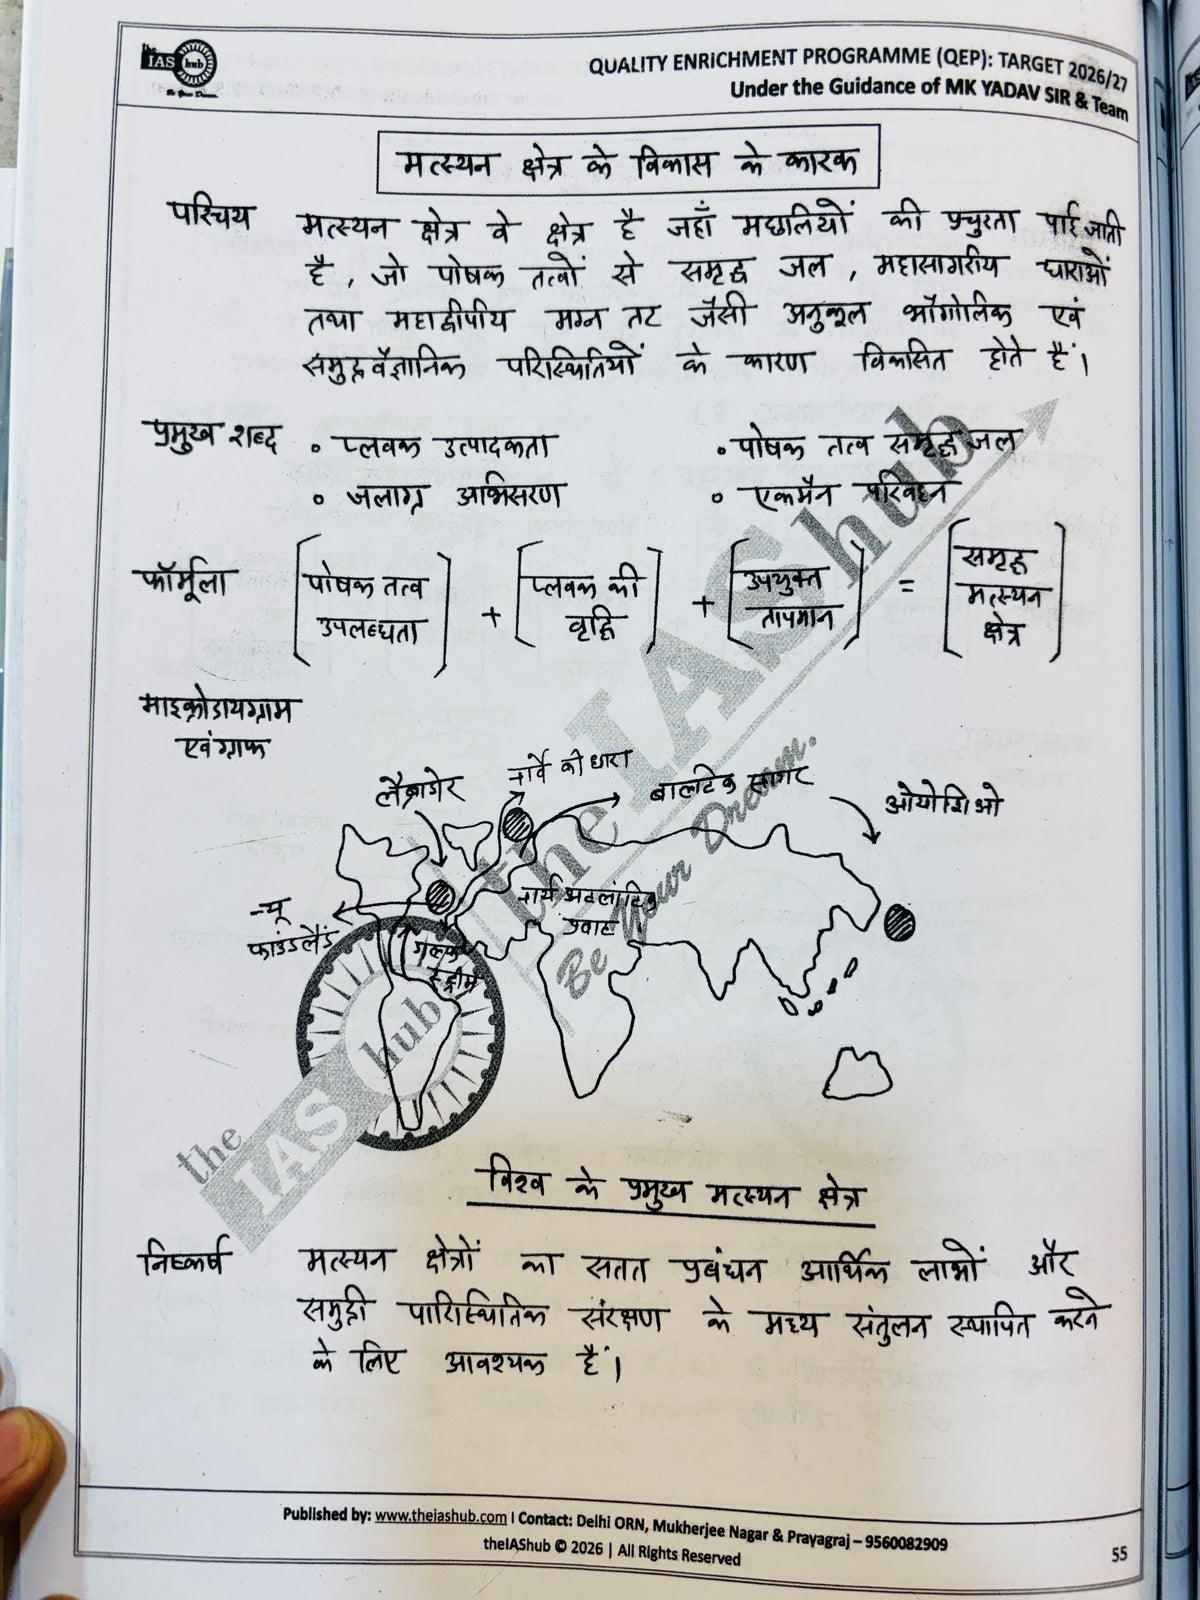 the IAS hub
Be Your Dream
QUALITY ENRICHMENT PROGRAMME (QEP): TARGET 2026/27
Under the Guidance of MK YADAV SIR & Team
मत्स्यन क्षेत्र के विकास के कारक
परिचय मत्स्यन क्षेत्र वे क्षेत्र है जहाँ मछलियों की प्रचुरता पाई जाती
है, जो पोषक तत्वों से समृद्ध जल, महासागरीय धाराओं
तथा महाद्वीपीय मग्न तट जैसी अनुकूल भौगोलिक एवं
समुद्रवैज्ञानिक परिस्थितियों के कारण विकसित होते हैं।
प्रमुख शब्द • प्लवक उत्पादकता • पोषक तत्व समृद्ध जल
• जलाग्र अभिसरण • एकमैन परिवहन
फॉर्मूला [पोषक तत्व उपलब्धता] + [प्लवक की वृद्धि] + [उपयुक्त तापमान] = [समृद्ध मत्स्यन क्षेत्र]
माइक्रोडायग्राम
एवं ग्राफ
लैब्राडोर
नार्वे की धारा
बाल्टिक सागर
ओयोशिओ
न्यू
फाउंडलैंड
गल्फ
स्ट्रीम
नार्थ अटलांटिक
प्रवाह
the IAS hub
Be Your Dream.
विश्व के प्रमुख मत्स्यन क्षेत्र
निष्कर्ष मत्स्यन क्षेत्रों का सतत प्रबंधन आर्थिक लाभों और
समुद्री पारिस्थितिक संरक्षण के मध्य संतुलन स्थापित करने
के लिए आवश्यक हैं।
Published by: www.theiashub.com I Contact: Delhi ORN, Mukherjee Nagar & Prayagraj – 9560082909
theIAShub © 2026 | All Rights Reserved
55